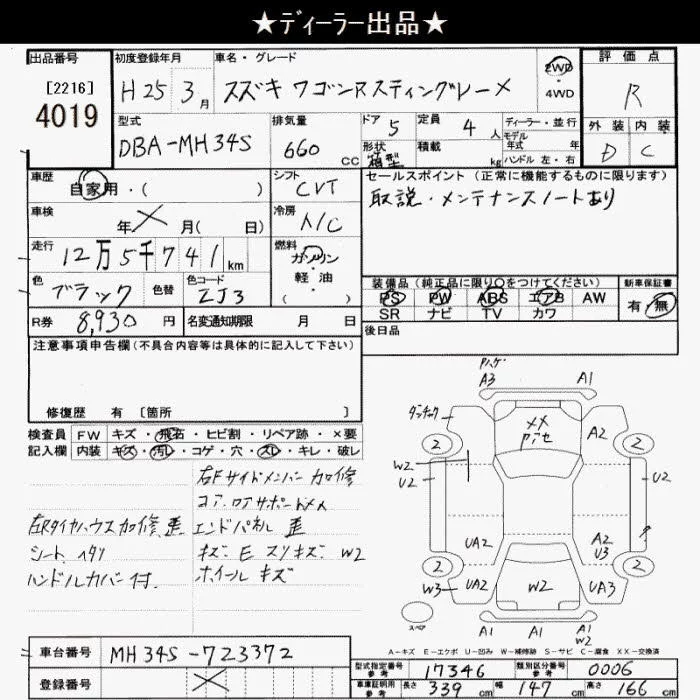 ★ディーラー出品★
出品番号
[2216]
4019
初度登録年月
H25 3月
車名・グレード
スズキ ワゴンRスティングレーX
2WD
4WD
評価点
R
外装 内装
D C
型式
DBA-MH34S
排気量
660 cc
ドア 5
形状
箱型
定員 4人
積載 kg
ディーラー・並行
モデル年式 年
ハンドル 左・右
車歴
自家用・( )
シフト
CVT
セールスポイント(正常に機能するものに限ります)
取説・メンテナンスノートあり
車検
年 月( 日)
冷房
A/C
走行
12万5千741km
燃料
ガソリン
・
軽油
( )
色
ブラック
色替
色コード
ZJ3
装備品(純正品に限り○をつけてください)
PS PW ABS エアB AW
SR ナビ TV カワ
新車保証書
有・無
R券 8,930円
名変通知期限 月 日
後日品
注意事項申告欄(不具合内容等は具体的に記入して下さい)
修復歴 有 [箇所 ]
検査員記入欄
FW キズ・飛石・ヒビ割・リペア跡・×要
内装 キズ・汚レ・コゲ・穴・スレ・キレ・破レ
右Fサイドメンバー加修
コア・ロアサポートメメ
右Rタイヤハウス加修、歪
エンドパネル 歪
シート ヘタリ
キズ・E スリキズ・W2
ハンドルカバー付.
ホイール キズ
Pハゲ
A3 A1
ダッチャク
××
コアセ
A2
2 2
W2
U2
U2
UA2
A2
U3
2 2
W3 UA2
W2
UA3
スペア
A1 A1 A1
W2
A-キズ E-エクボ U-凹み W-補修跡 S-サビ C-腐食 XX-交換済
車台番号 MH34S-723372
登録番号
型式指定番号
参考
17346
類別区分番号
参考
0006
車庫証明用
参考
長さ 339cm 幅 147cm 高さ 166cm